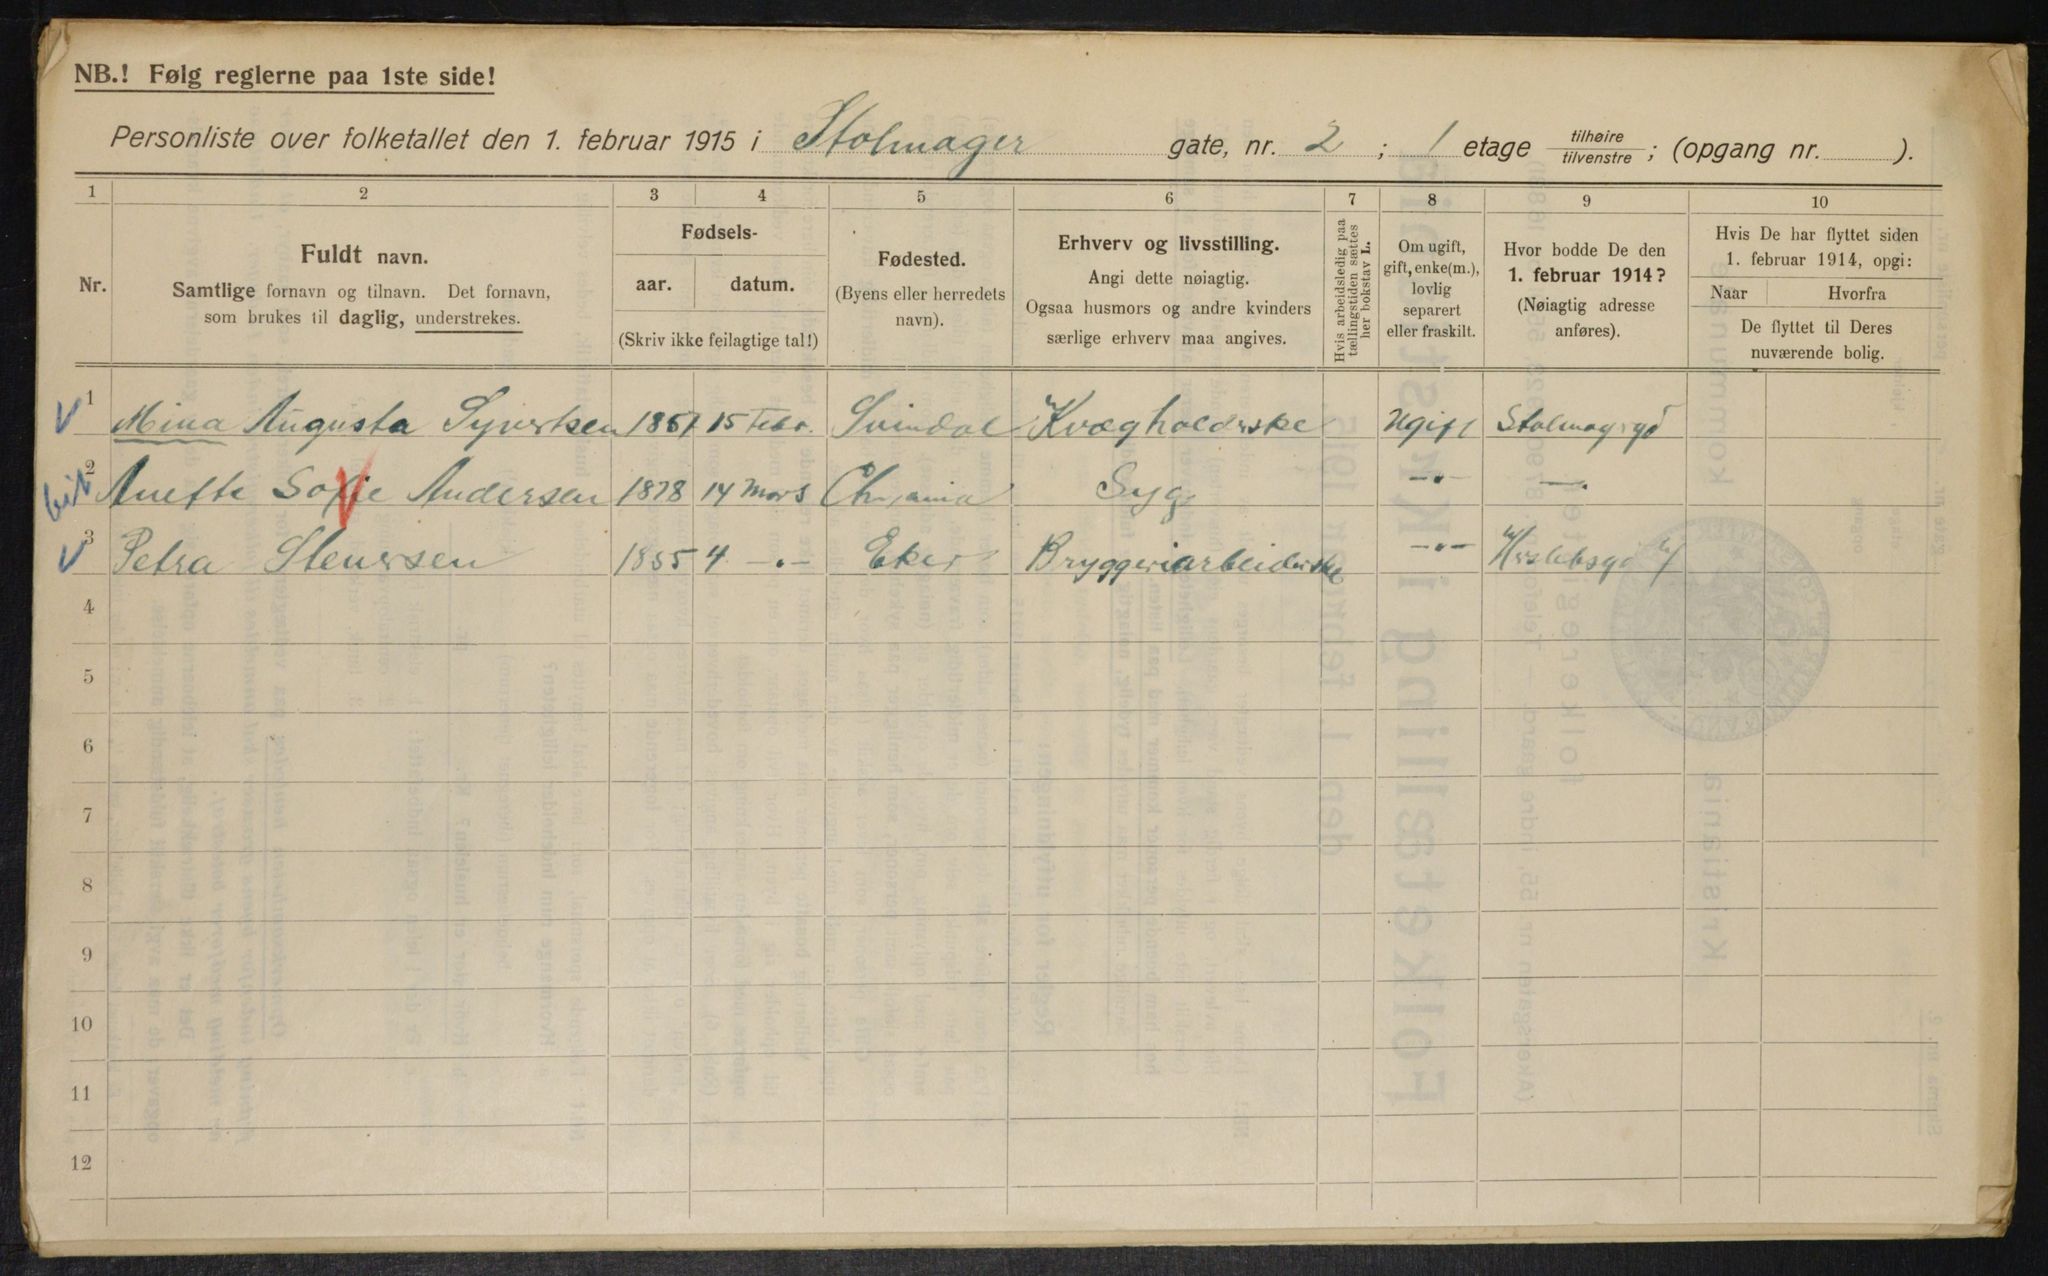 NB.! Følg reglerne paa 1ste side!
Personliste over folketallet den 1. februar 1915 i Stolmager gate, nr. 2 ; 1 etage tilhøire/tilvenstre ; (opgang nr. ).
1 2 3 4 5 6 7 8 9 10
Nr.
Fuldt navn.
Samtlige fornavn og tilnavn. Det fornavn,
som brukes til daglig, understrekes.
Fødsels-
aar. datum.
(Skriv ikke feilagtige tal!)
Fødested.
(Byens eller herredets
navn).
Erhverv og livsstilling.
Angi dette nøiagtig.
Ogsaa husmors og andre kvinders
særlige erhverv maa angives.
Hvis arbeidsledig paa
tællingstiden sættes
her bokstav L.
Om ugift,
gift, enke(m.),
lovlig
separert
eller fraskilt.
Hvor bodde De den
1. februar 1914?
(Nøiagtig adresse
anføres).
Hvis De har flyttet siden
1. februar 1914, opgi:
Naar Hvorfra
De flyttet til Deres
nuværende bolig.
1 Mina Augusta Syvertsen 15 Febr. Svindal Kvægholderske Ugift Stolmaggd
2 Anette Sofie Andersen 1878 14 Mars Chrania Syg -"- -"-
3 Petra Stenersen 1855 4 -"- Eker Bryggeriarbeiderske -"-
4
5
6
7
8
9
10
11
12